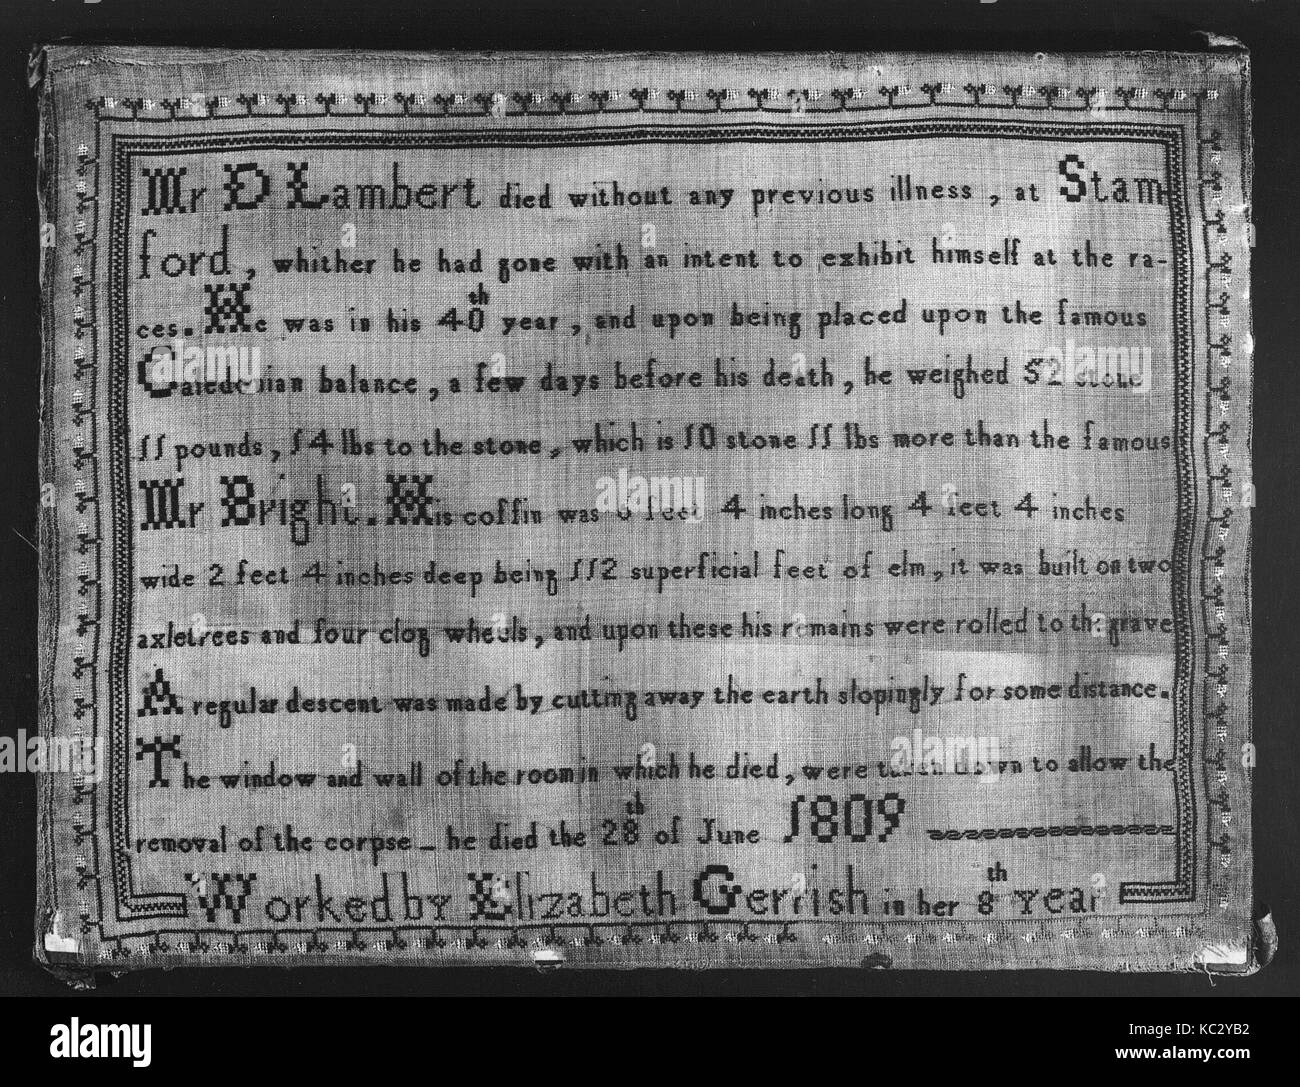 Mr D Lambert died without any previous illness, at Stam
ford, whither he had gone with an intent to exhibit himself at the ra-
ces. He was in his 40th year, and upon being placed upon the famous
Caledonian balance, a few days before his death, he weighed 52 stone
11 pounds, 14 lbs to the stone, which is 10 stone 11 lbs more than the famous
Mr Bright. His coffin was 6 feet 4 inches long 4 feet 4 inches
wide 2 feet 4 inches deep being 112 superficial feet of elm, it was built on two
axletrees and four clog wheels, and upon these his remains were rolled to the grave
A regular descent was made by cutting away the earth slopingly for some distance.
The window and wall of the room in which he died, were taken down to allow the
removal of the corpse - he died the 28th of June 1809
Worked by Elizabeth Gerrish in her 8th Year
alamy
Image ID: KC2YB2
www.alamy.com